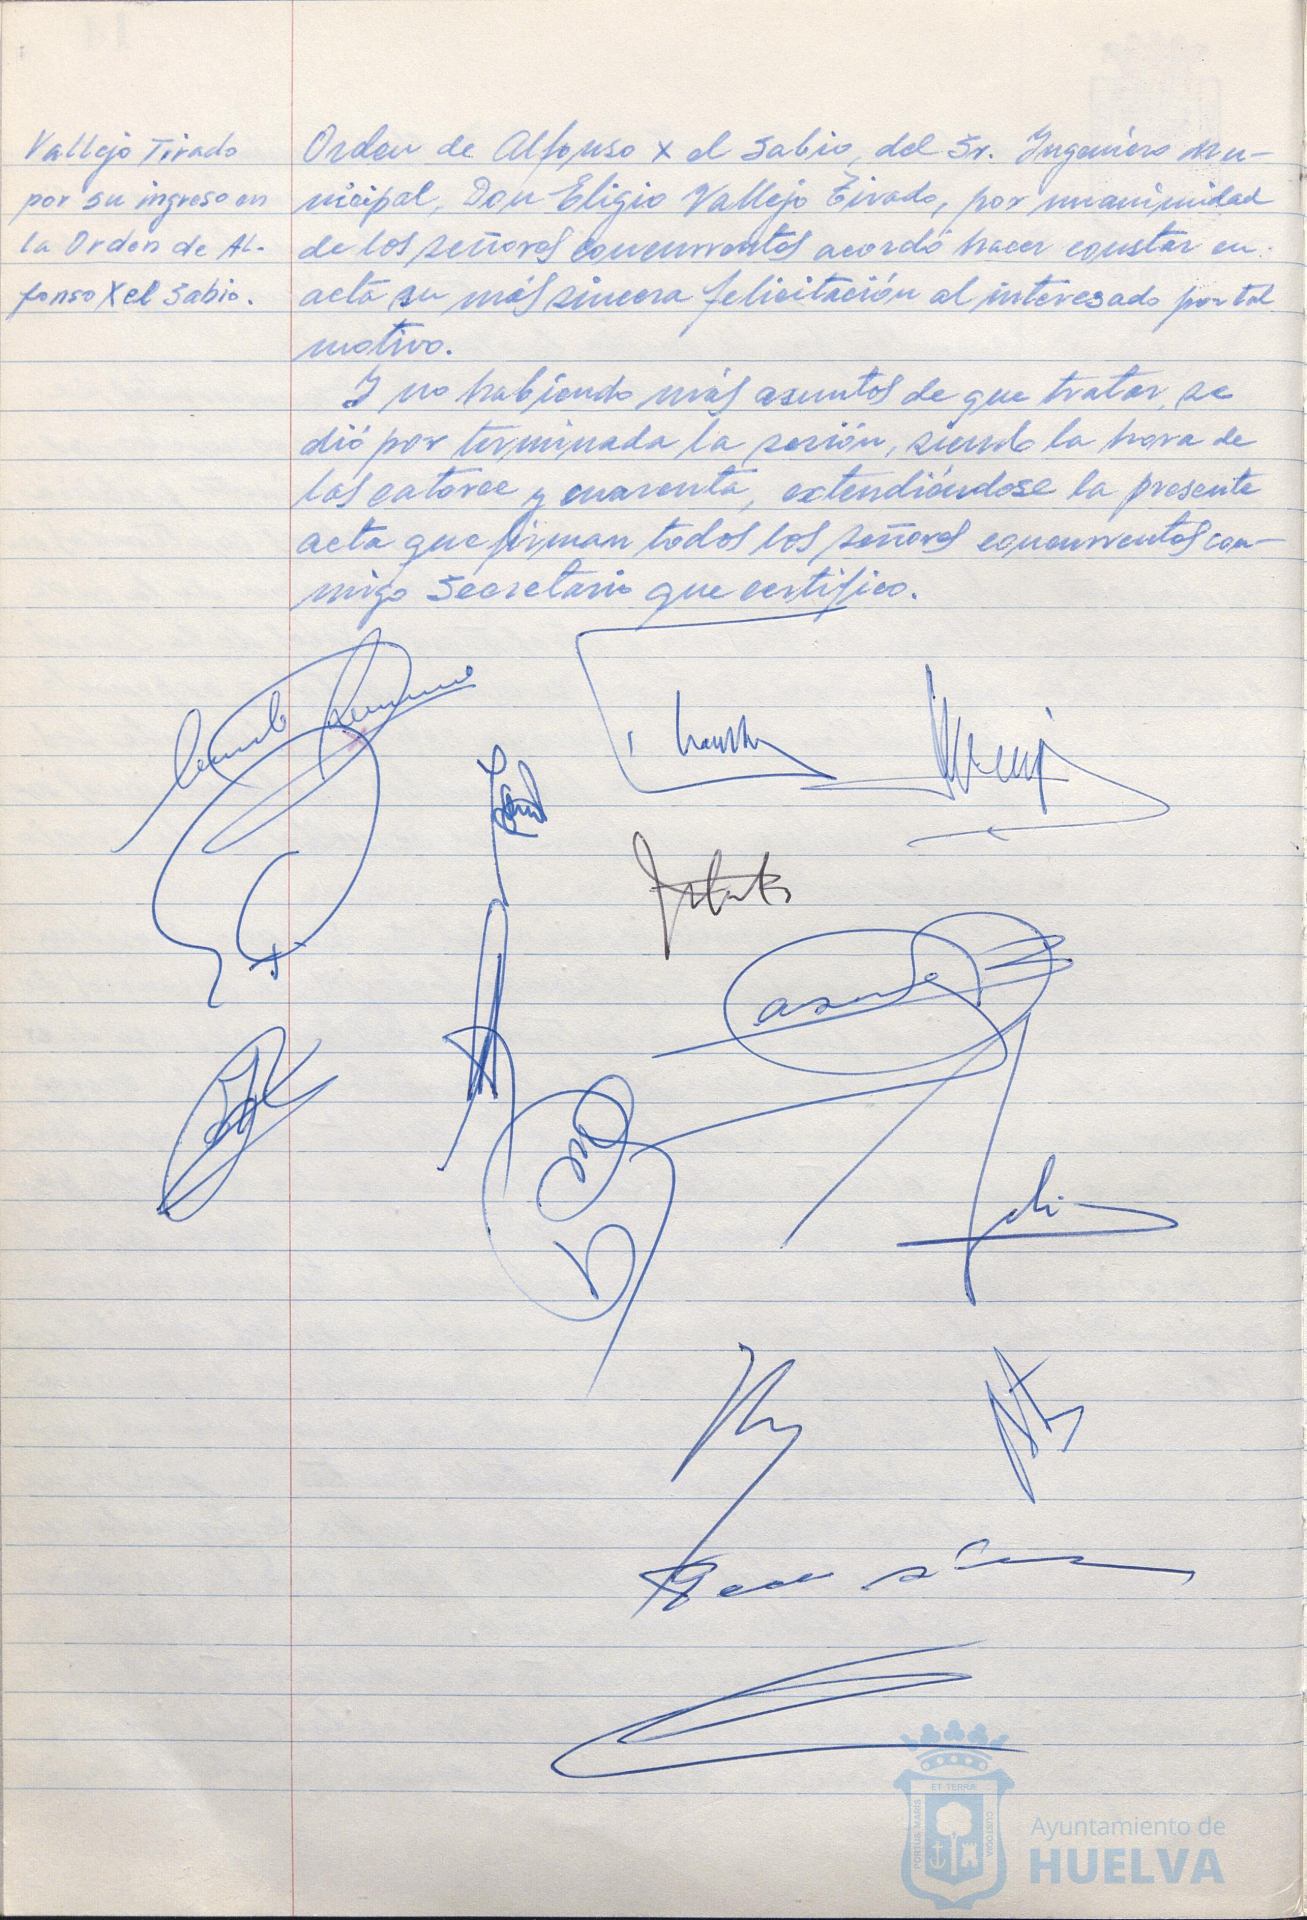 Vallejo Tirado
por su ingreso en
la Orden de Al-
fonso X el Sabio.
Orden de Alfonso X el Sabio, del Sr. Ingeniero Mu-
nicipal, Don Eligio Vallejo Tirado, por unanimidad
de los señores concurrentes acordó hacer constar en
acta su más sincera felicitación al interesado por tal
motivo.
Y no habiendo más asuntos de que tratar, se
dió por terminada la sesión, siendo la hora de
las catorce y cuarenta, extendiéndose la presente
acta que firman todos los señores concurrentes con-
migo Secretario que certifico.
ET TERRÆ
PORTUS MARIS
CUSTODIA
Ayuntamiento de
HUELVA